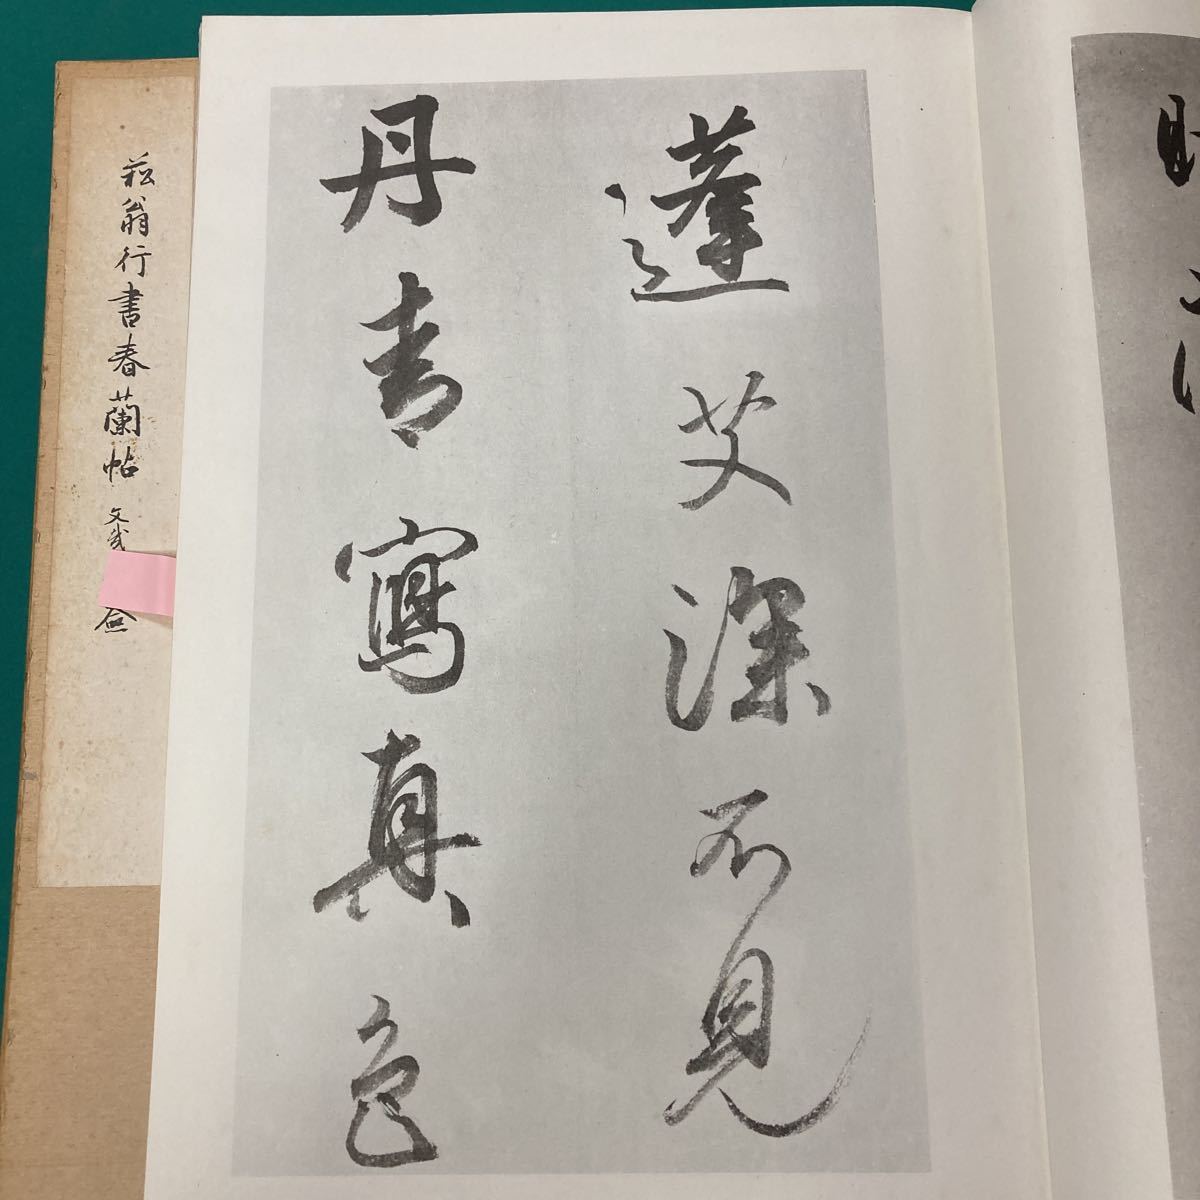 蓬艾深不見
丹青寫真色
菘翁行書春蘭帖 文